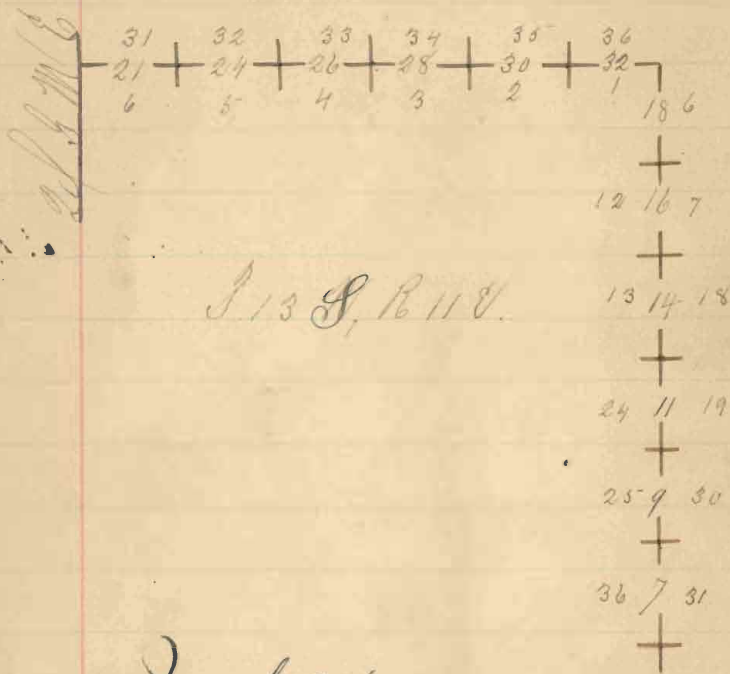 31 32 33 34 35 36
21 24 26 28 30 32
6 5 4 3 2 1
18 6
12 16 7
T 13 S, R 11 E.
13 14 18
24 11 19
25 9 30
36 7 31